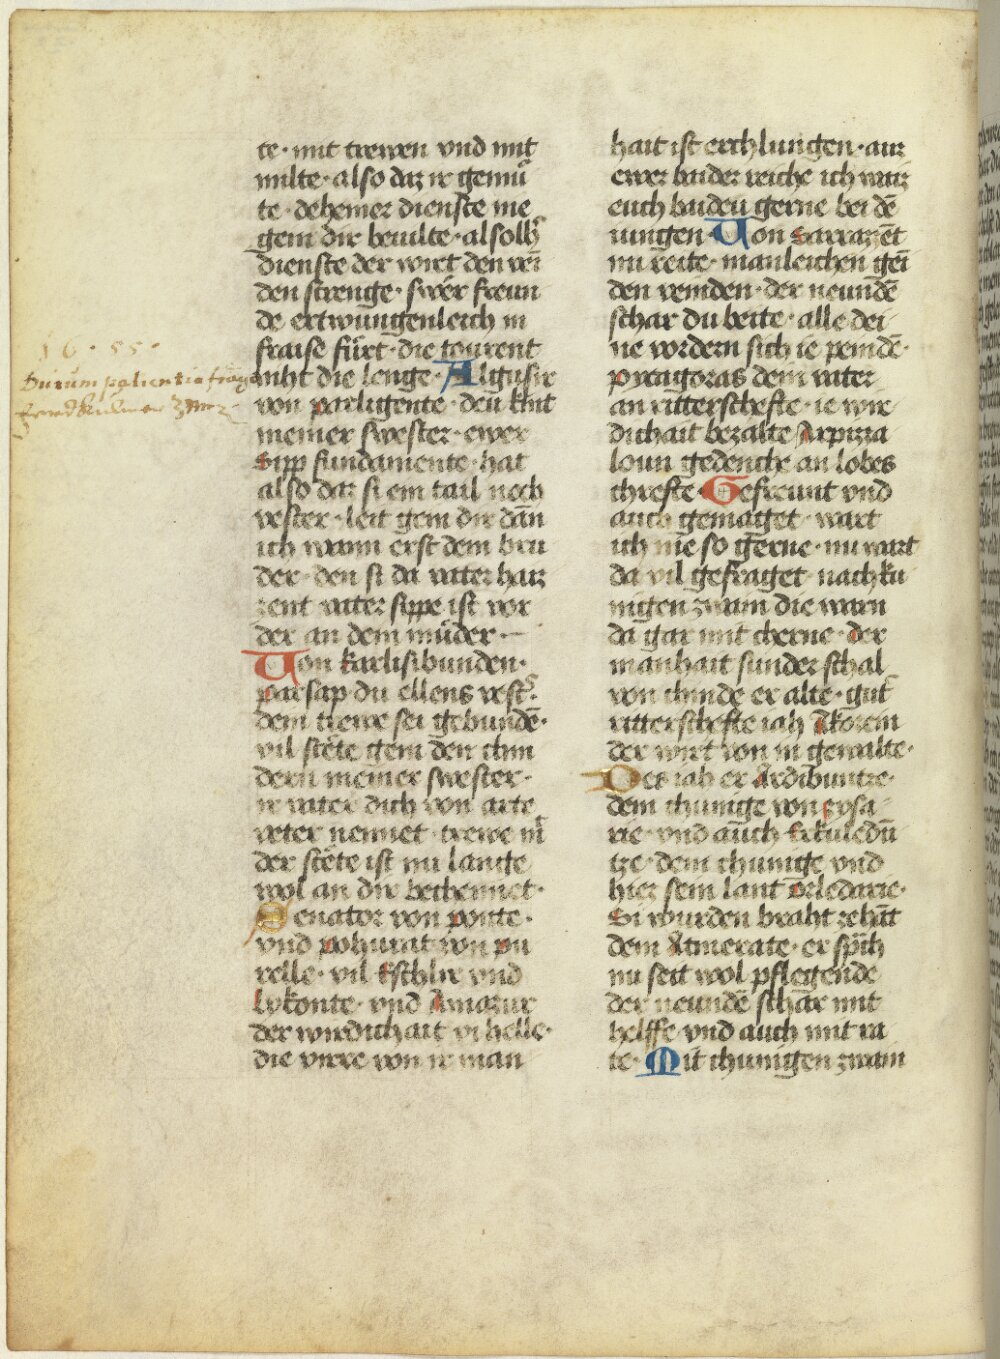 te · mit trewen vnd mit
milte · also daz ir gemuͤ
te · dehemer dienste me
gem dir beuilte · alsolh̛
dienste der wirt den vei
den strenge · swer freun
de ertwungenleich in
fraise fuͤrt · die tourent
niht die lenge · Algusir
von parligente · den kint
meiner swester · ewer
Sipp fundamente · hat
also daz si em tail noch
vester · leit gem dir dān
ich wann erst dem bru
der · den si da vater haiz
zent vater sippe ist vor
der an dem muͤder ·
Von karlisibunden ·
parsap du ellens vest̛ ·
dem trewe sei gebundē ·
vil stete gem den chin
dern meiner swester ·
ir vater dich von arte
veter nennet · trewe m̄
der stete ist nu lange
wol an dir bechennet ·
Senator von ponte ·
vnd pohurat von pu
relle · vil Eschlir vnd
lykonte · vnd Amazur
der wirdichait vi helle ·
die viere von ir man
16 · 55 ·
Durum patientia frango
hait ist erchlungen · auz
ewer baider reiche ich waiz
euch baideu gerne bei dē
iungen · Von Sarrazēt
nu reite · manleichen gei
den veinden · der neundē
schar du beite · alle dei
ne vordern sich ie peinde ·
pytagoras dein vater
an ritterschefte · ie wir
dichait bezalte Arpizia
loun gedenche an lobes
chrefte · Gefreunt vnd
auch gemaget · wart
ich nie so gerne · nu wart
da vil gefraget · nach ku
nigen zwain die warn
da gar mit cherne · der
manhait sunder schal
von chinde er alte · gut̛
ritterschefte iah Akorein
der wirt von in gewalte ·
Des iah er Ardibuntze ·
dem chunige von eysa
rie · vnd auch Erkuledū
tze · dem chunige vnd
hier sein lant Orledarie ·
Si wurden braht zehāt
dem Atmerate · er sp̄ch
nu seit wol pflegende
der neundē schar mit
helffe · vnd auch mit ra
te · Mit chunigen zwain